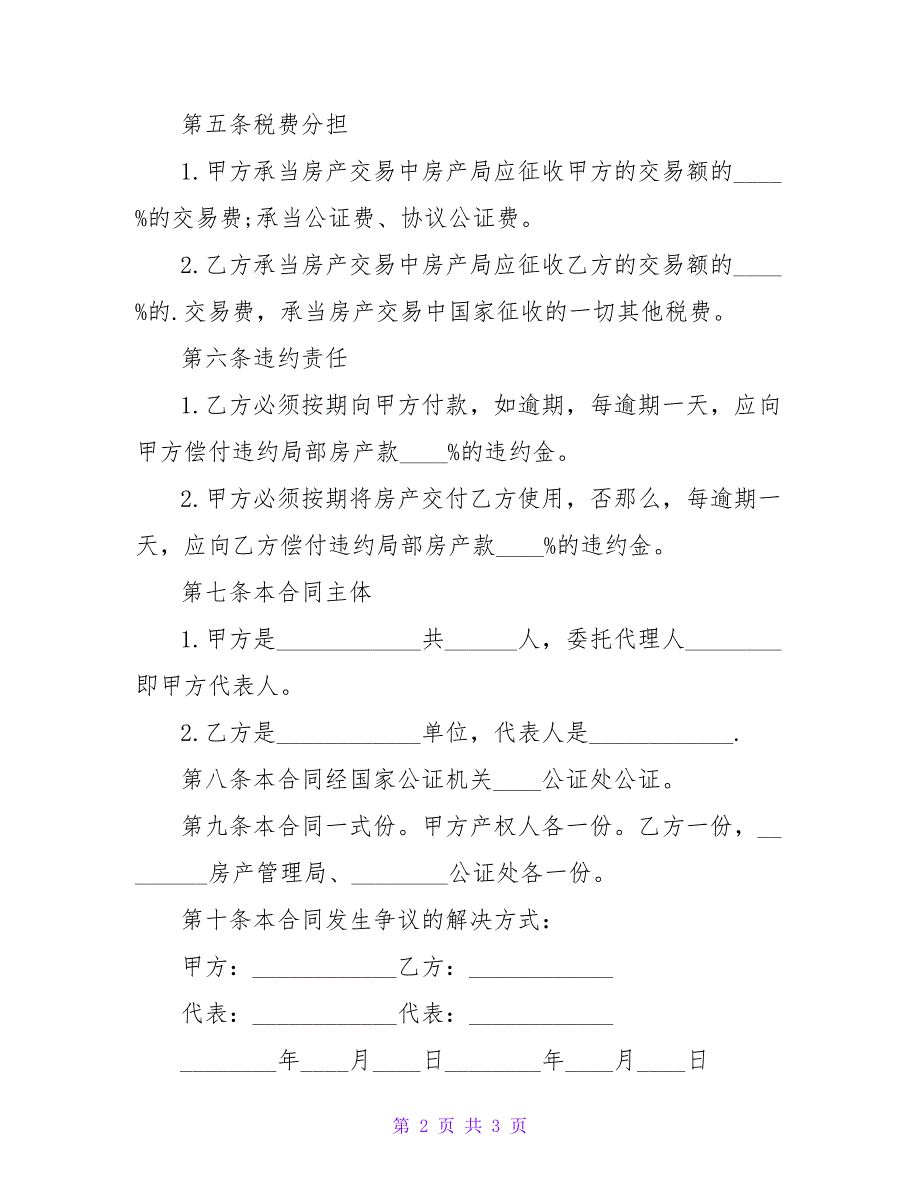 第五条税费分担
1.甲方承当房产交易中房产局应征收甲方的交易额的____
%的交易费;承当公证费、协议公证费。
2.乙方承当房产交易中房产局应征收乙方的交易额的____
%的.交易费，承当房产交易中国家征收的一切其他税费。
第六条违约责任
1.乙方必须按期向甲方付款，如逾期，每逾期一天，应向
甲方偿付违约局部房产款____%的违约金。
2.甲方必须按期将房产交付乙方使用，否那么，每逾期一
天，应向乙方偿付违约局部房产款____%的违约金。
第七条本合同主体
1.甲方是____________共______人，委托代理人________
即甲方代表人。
2.乙方是____________单位，代表人是____________.
第八条本合同经国家公证机关____公证处公证。
第九条本合同一式份。甲方产权人各一份。乙方一份，__
______房产管理局、________公证处各一份。
第十条本合同发生争议的解决方式：
甲方：____________乙方：____________
代表：____________代表：____________
________年____月____日________年____月____日
第 2 页 共 3 页